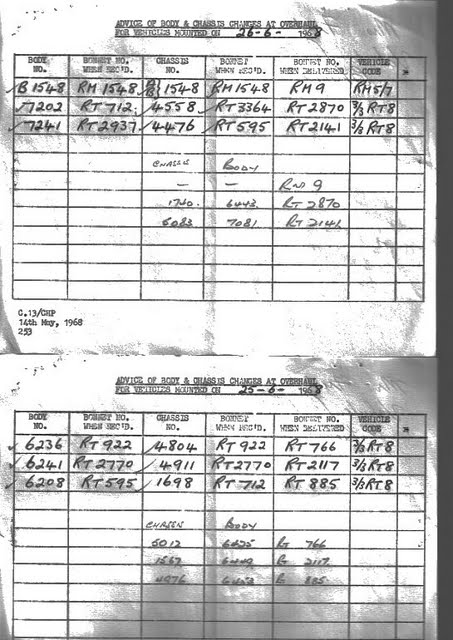 ADVICE OF BODY & CHASSIS CHANGES AT OVERHAUL
FOR VEHICLES MOUNTED ON 26-6- 1968
BODY NO. BONNET NO. WHEN REC'D. CHASSIS NO. BONNET WHEN REC'D. BONNET NO. WHEN DELIVERED VEHICLE CODE
✓ B1548 RM 1548 1548 RM1548 RM9 RM5/7
✓ 7202 RT 712 ✓ 4558 ✓ RT3364 RT 2870 3/3 RT8
✓ 7241 RT2937 ✓ 4476 ✓ RT595 RT2141 3/3 RT8
CHASSIS BODY
— — RM 9
1740 6443 RT 2870
5083 7081 RT 2141
C.13/CHP
14th May, 1968
253
ADVICE OF BODY & CHASSIS CHANGES AT OVERHAUL
FOR VEHICLES MOUNTED ON 25-6- 1968
BODY NO. BONNET NO. WHEN REC'D. CHASSIS NO. BONNET WHEN REC'D. BONNET NO. WHEN DELIVERED VEHICLE CODE
✓ 6236 RT922 ✓ 4804 RT 922 RT 766 3/3 RT8
✓ 6241 RT2770 ✓ 4911 RT2770 RT 2117 3/3 RT8
✓ 6208 RT 595 ✓ 1698 RT 712 RT 885 3/3 RT8
CHASSIS BODY
5012 Rt 766
1567 2117
4976 885